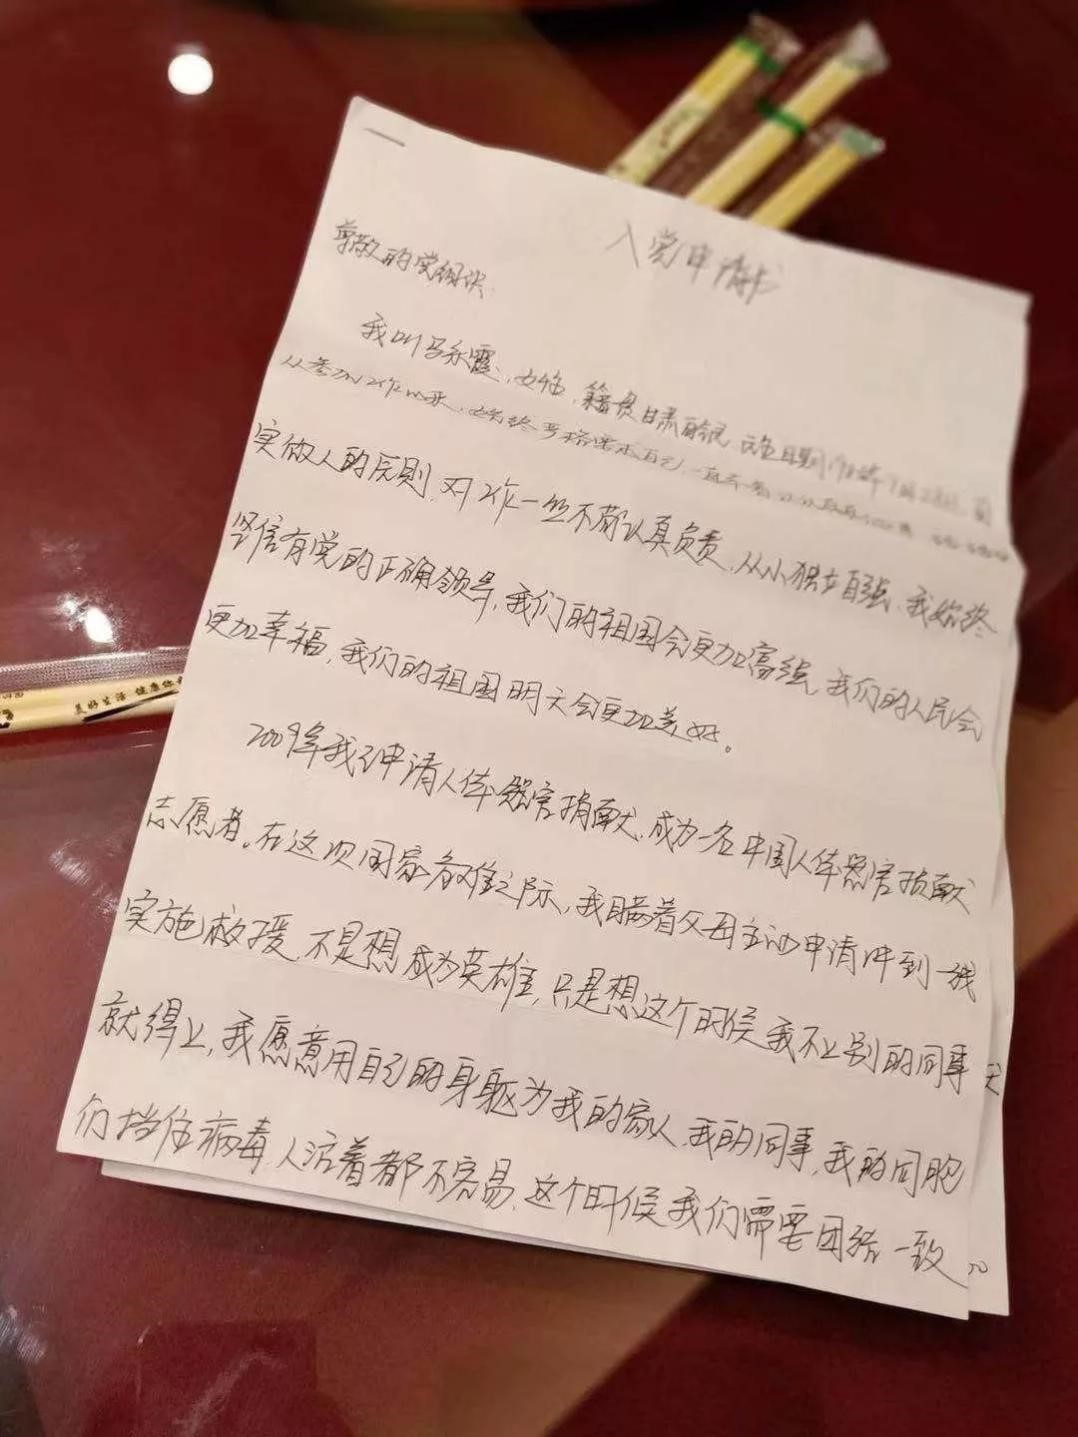 入党申请书
尊敬的党组织:
我叫马永霞,女,籍贯甘肃
从参加工作以来,始终严格要求自己,一直
实做人的原则,对工作一丝不苟认真负责,从小独立自强,我始终
坚信有党的正确领导,我们的祖国会更加富强,我们的人民会
更加幸福,我们的祖国明天会更加美好。
2009年我已申请人体器官捐献,成为名中国人体器官捐献
志愿者。在这次国家有难之际,我瞒着父母主动申请冲到一线
实施救援,不是想成为英雄,只是想这个时候我不上别的同事
就得上,我愿意用自己的身躯为我的家人,我的同事,我的同胞
们挡住病毒,人活着都不容易,这个时候我们需要团结一致。
美好生活 健康